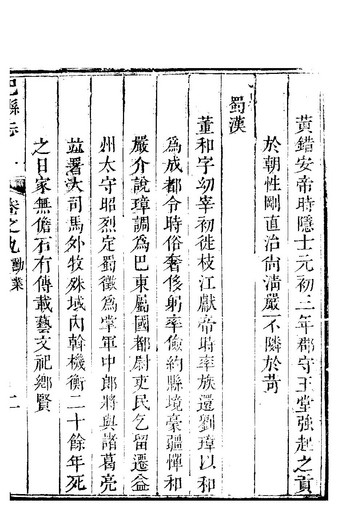 黃錯安帝時隱士元初三年郡守王堂強起之貢
於朝性剛直治尚清嚴不隣於苛
蜀漢
董和字幼宰初徙枝江獻帝時率族還劉璋以和
為成都令時俗奢侈躬率儉約縣境豪疆憚和
嚴介說璋調為巴東屬國都尉吏民乞留遷益
州太守昭烈定蜀徵為掌軍中郎將與諸葛亮
竝署大司馬外牧殊域內幹機衡二十餘年死
之日家無儋石有傳載藝文祀鄉賢
巴縣志 卷之九 勳業 二